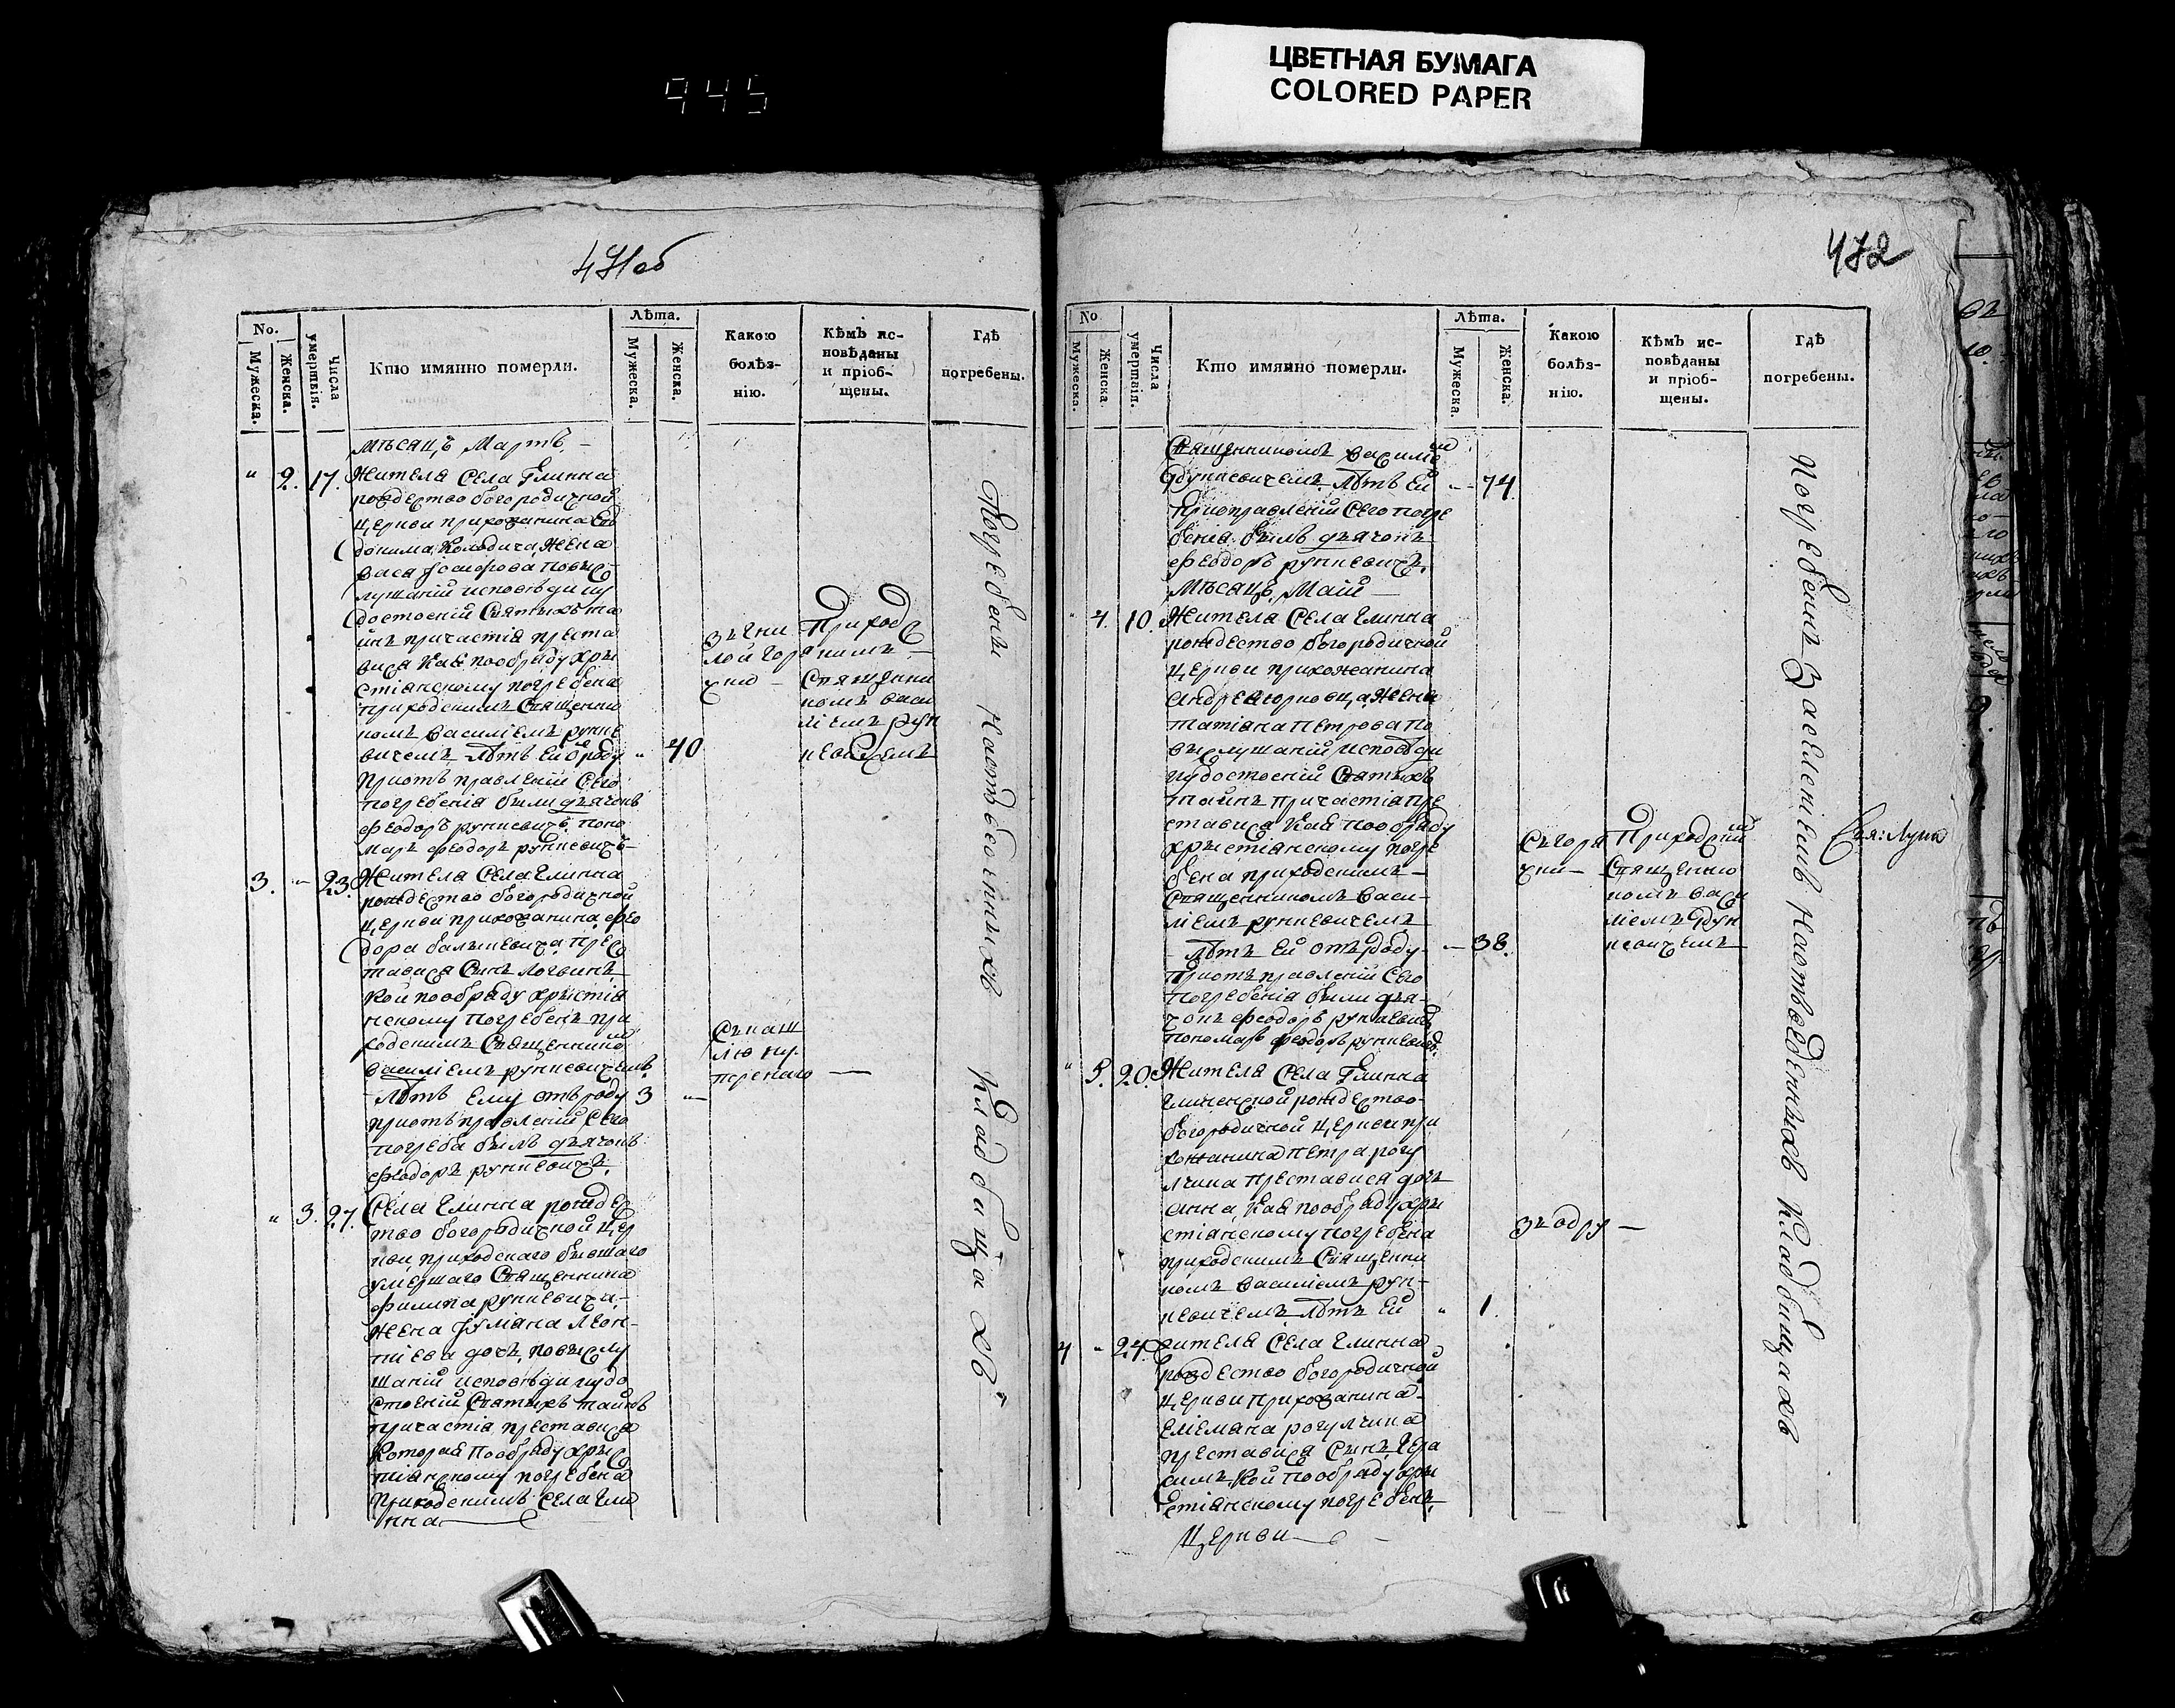 ЦВЕТНАЯ БУМАГА
COLORED PAPER
945
471об
No.
Мужеска.
Женска.
Числа умертвія.
Кто имянно померли.
Лѣта.
Мужеска.
Женска.
Какою
болѣз-
нію.
Кѣмъ ис-
повѣданы
и пріоб-
щены.
Гдѣ
погребены.
мѣсяцъ Мартъ
" 2. 17. Жителя Села Глинна
рождество богородичной
церкви прихожанина Евд
докима Колодича Жена
лушаній исповѣди и у
достоеній Святихъ та
инъ причастія преста
вися Кая пообряду хри
стіанскому погребена
приходскимъ Священни
комъ Василіемъ рунке
вичемъ Лѣтъ Ей 40
Приотъправленій Сего
погребенія били дьячокъ
феодоръ рункевичъ. поно
маръ феодоръ рункевичъ
Приход
Священни
комъ васи
ліемъ рун
кевичемъ
3. " 23. Жителя Села Глинна
рождество богородичной
церкви прихожанина, фео
дора прес
тавися Синъ логвинъ
Кой пообряду христіа
нскому погребенъ при
ходскимъ Священникомъ
василіемъ рункевичемъ
Лѣтъ Ему отъ роду 3 "
приотъправленій Сего
погреба билъ дьячокъ
феодоръ рункевичъ.
Съкаш
лю
" 3. 27. Села Глинна рождес
тво богородичной цер
кви, приходскаго бившаго
умершаго Священника
филипа рункевича,
жена Леон-
тіева дочь, повислу
шаній исповѣди и удо
стоеній Святихъ тайнъ
причастія преставися
Которая пообряду хрис
тіанскому погребена
Приходскимъ Села Гли
нна
Погребени Наотвѣденнихъ Кладбищахъ
472
No
Мужеска.
Женска.
Числа умертвія.
Кто имянно померли.
Лѣта.
Мужеска.
Женска.
Какою
болѣз-
нію.
Кѣмъ ис-
повѣданы
и пріоб-
щены.
Гдѣ
погребены.
Священникомъ василіемъ
Рункевичемъ. Лѣтъ Ей — 74.
Приоправленій Сего погре
бенія. билъ дьячокъ
феодоръ рункевичъ.
Мѣсяцъ, Маій
" 4. 10. Жителя Села Глинна
рождество богородичной
церкви прихожанина
андрея Жена
татіана Петрова по
вислушаній исповѣди
иудостоеній Святихъ
таинъ Причастія пре
ставися Кая пообряду
христіанскому погре
бена приходскимъ
Священникомъ Васи-
ліемъ рункевичемъ
Лѣтъ Ей отъ роду — 38.
Приотъправленій Сего
погребенія били дья-
чокъ феодоръ рункевичъ
пономаръ феодоръ рункевичъ.
Съгоря
чки
Приходским
Священно
комъ васи
ліемъ Рун
кевичемъ
" 5. 20. Жителя Села Глинна
глиненской рождество
богородичной церкви при
хожанина петра рогу
лчика преставися дочь
анна, Кая пообряду хри
стіанскому погребена
приходскимъ Священни
комъ василіемъ рун-
кевичемъ Лѣтъ Ей " 1.
4 " 24. Жителя Села Глинна
рождество богородичной
церкви прихожанина
рогулчика
преставися Синъ, Гера
симъ, Кой пообряду хри
стіанскому погребенъ
Церкви
Наотвѣденнихъ Кладбищахъ